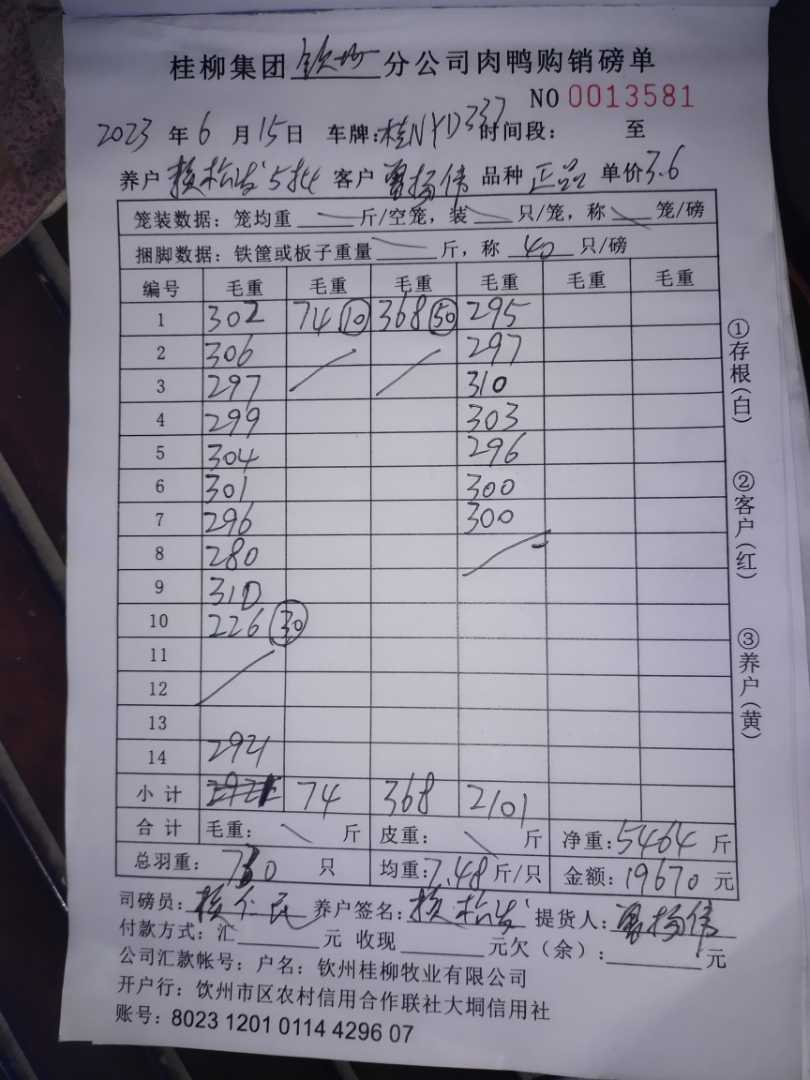 桂柳集团 钦州 分公司肉鸭购销磅单
NO 0013581
2023 年 6 月 15 日 车牌:桂NYD337 时间段: 至
养户 赖松发5批 客户 曾扬伟 品种 正品 单价 3.6
笼装数据:笼均重 斤/空笼,装 只/笼,称 笼/磅
捆脚数据:铁筐或板子重量 斤,称 40 只/磅
编号 毛重 毛重 毛重 毛重 毛重 毛重
1 302 74 10 368 50 295
2 306 297
3 297 310
4 299 303
5 304 296
6 301 300
7 296 300
8 280
9 310
10 226 30
11
12
13
14 2921
小计 74 368 2101
合计 毛重: 斤 皮重: 斤 净重:5464 斤
总羽重: 730 只 均重:7.48 斤/只 金额:19670 元
司磅员:赖仁民 养户签名:赖松发 提货人:曾扬伟
付款方式:汇 元 收现 元欠(余): 元
公司汇款帐号:户名:钦州桂柳牧业有限公司
开户行:钦州市区农村信用合作联社大垌信用社
账号:8023 1201 0114 4296 07
①存根(白)
②客户(红)
③养户(黄)